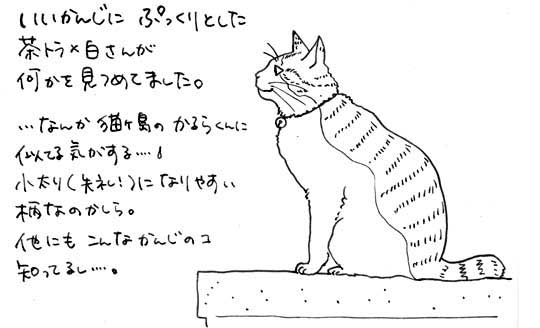 いいかんじに ぷっくりとした
茶トラ×白さんが
何かを見つめてました。
…なんか 猫ヶ島の かるらくんに
似てる気がする…!
小太り(失礼!)になりやすい
柄なのかしら。
他にも こんなかんじのコ
知ってるし…。